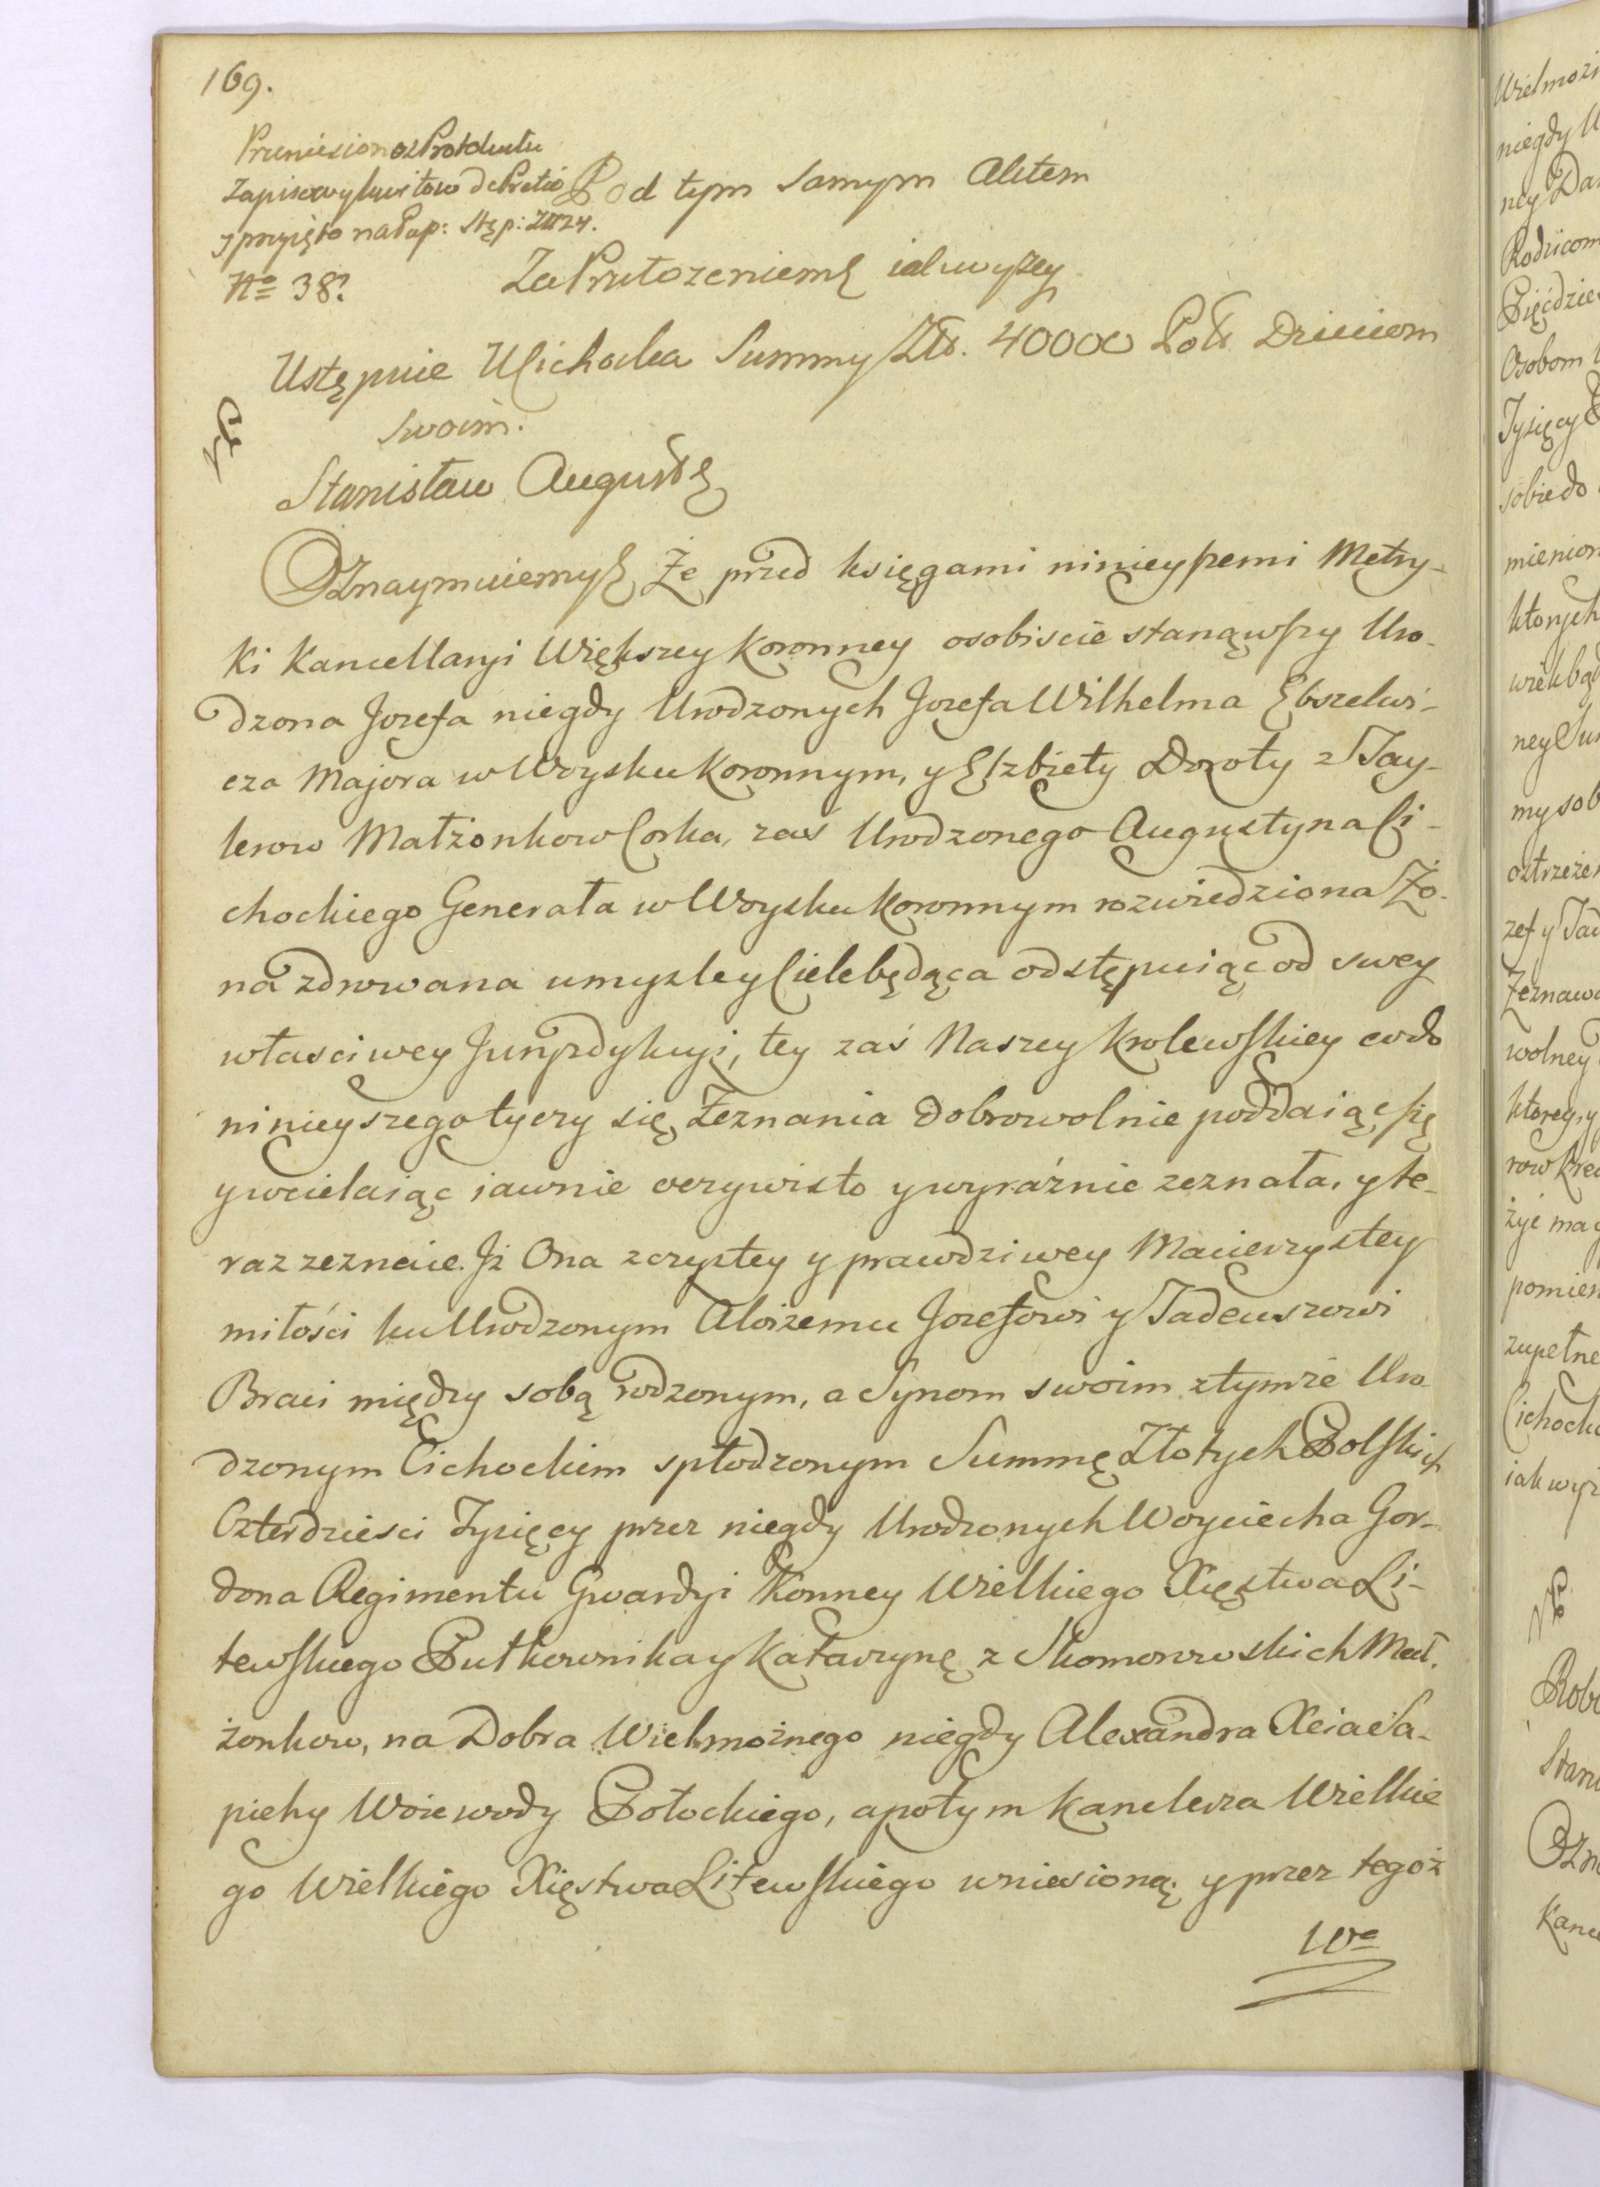 169.
Przeniesiono z Protokułu
Zapisow y kwitow de Pretio
y przyięto na Pap: Stęp: Zł 24.
No 38.
Pod tym samym Aktem
Za Przełożeniem &c iak wyżey
Ustępuie Cichocka Summy Złł. 40000 Polł Dzieciom
swoim.
Stanisław August &c
Oznaymuiemy &c Że przed księgami ninieyszemi Metry-
ki Kancellaryi Większey Koronney osobiscie stanąwszy Uro-
dzona Jozefa niegdy Urodzonych Jozefa Wilhelma Ebszelwi-
cza Majora w Woysku Koronnym, y Elzbiety Doroty z Tay-
lerow Małżonkow Corka, zaś Urodzonego Augustyna Ci-
chockiego Generała w Woysku Koronnym rozwiedziona Żo-
na zdrowa na umysle y Ciele będąca odstępuiąc od swey
właściwey Juryzdykcyi, tey zaś Naszey Krolewskiey co do
ninieyszego tyczy się Zeznania dobrowolnie poddaiąc się
y wcielaiąc iawnie oczywisto y wyraźnie zeznała, y te-
raz zeznaie. Jż Ona z czystey y prawdziwey Macierzystey
miłości ku Urodzonym Aloizemu Jozefowi y Tadeuszowi
Braci między sobą rodzonym, a Synom swoim z tymże Uro-
dzonym Cichockim spłodzonym Summę Złotych Polskich
Czterdziesci Tysięcy przez niegdy Urodzonych Woyciecha Gor-
dona Regimentu Gwardyi Konney Wielkiego Xięstwa Li-
tewskiego Pułkownika y Katarzynę z Skomorowskich Mał-
żonkow, na Dobra Wielmożnego niegdy Alexandra Xcia Sa-
piehy Woiewody Połockiego, a potym Kanclerza Wielkie
go Wielkiego Xięstwa Litewskiego wniesioną; y przez tegoż
We